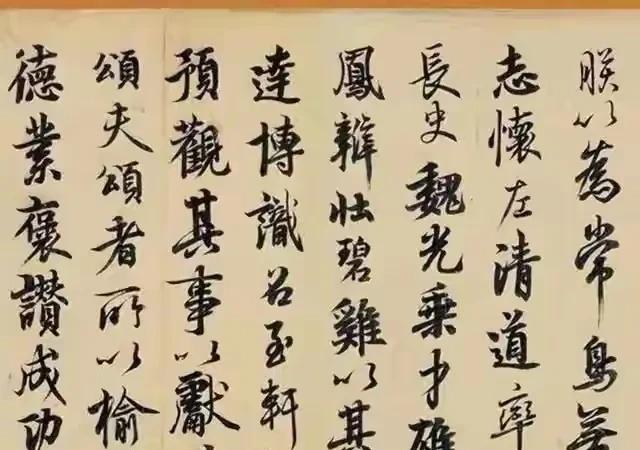 朕以為常鳥無
志懷左清道率
長史魏光乘才雄
鳳辯壯碧雞以其
達博識召至軒
預觀其事以獻
頌夫頌者所以揄
德業褒讚成功